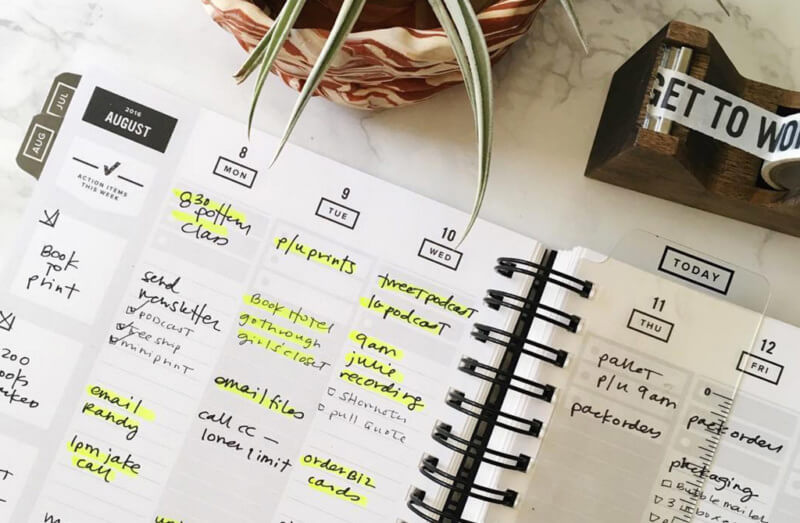 JUL
AUG
2016
AUGUST
ACTION ITEMS
THIS WEEK
Book
to
print
200
8
MON
830
pottery
class
send
newsletter
PODCAST
free ship
miniprint
email
Randy
1pm jake
call
9
TUE
p/u prints
Book Hotel
go through
girls' closet
email files
call cc –
loner limit
10
WED
tweet podcast
la podcast
9am
julie
recording
pull quote
order Biz
cards
GET TO WO
TODAY
11
THU
pallet
p/u 9am
pack orders
12
FRI
0
pack orders
packaging
Bubble mailer